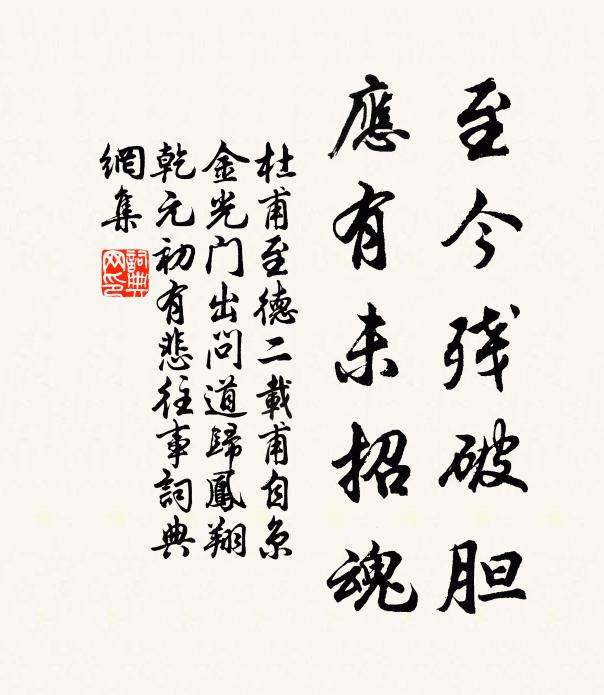 至今残破胆
應有未招魂
杜甫至德二載甫自京
金光门出問道歸鳳翔
乾元初有悲往事詞典
網集
詞典網印